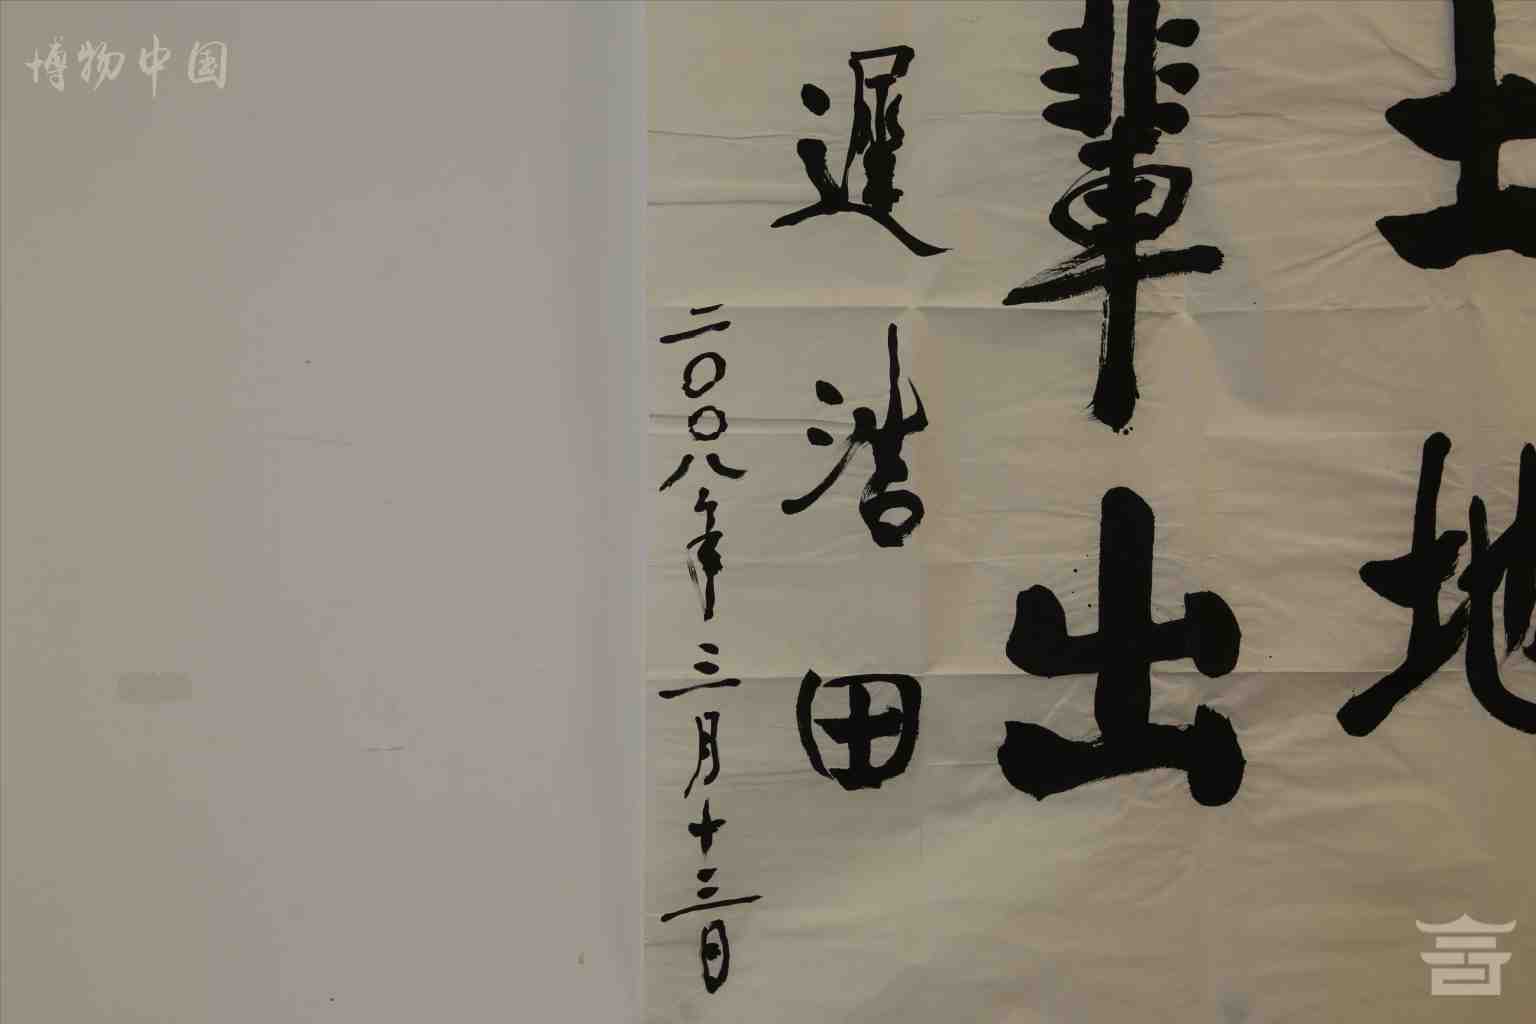 博物中国
土地
輩出
遲浩田
二〇〇八年三月十三日